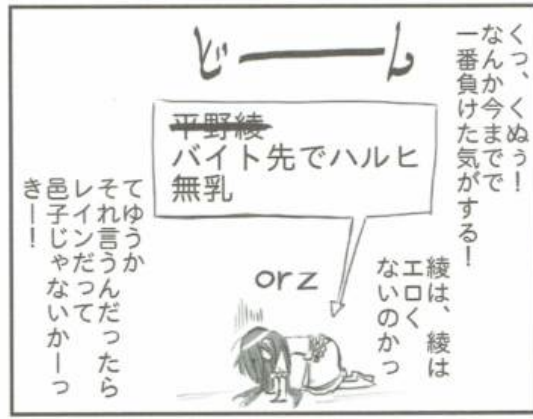 くっ、くぬぅ！
なんか今までで
一番負けた気がする！
どーーん
平野綾
バイト先でハルヒ
無乳
綾は、綾は
エロく
ないのかっ
orz
てゆうか
それ言うんだったら
レインだって
邑子じゃないかーっ
きー！